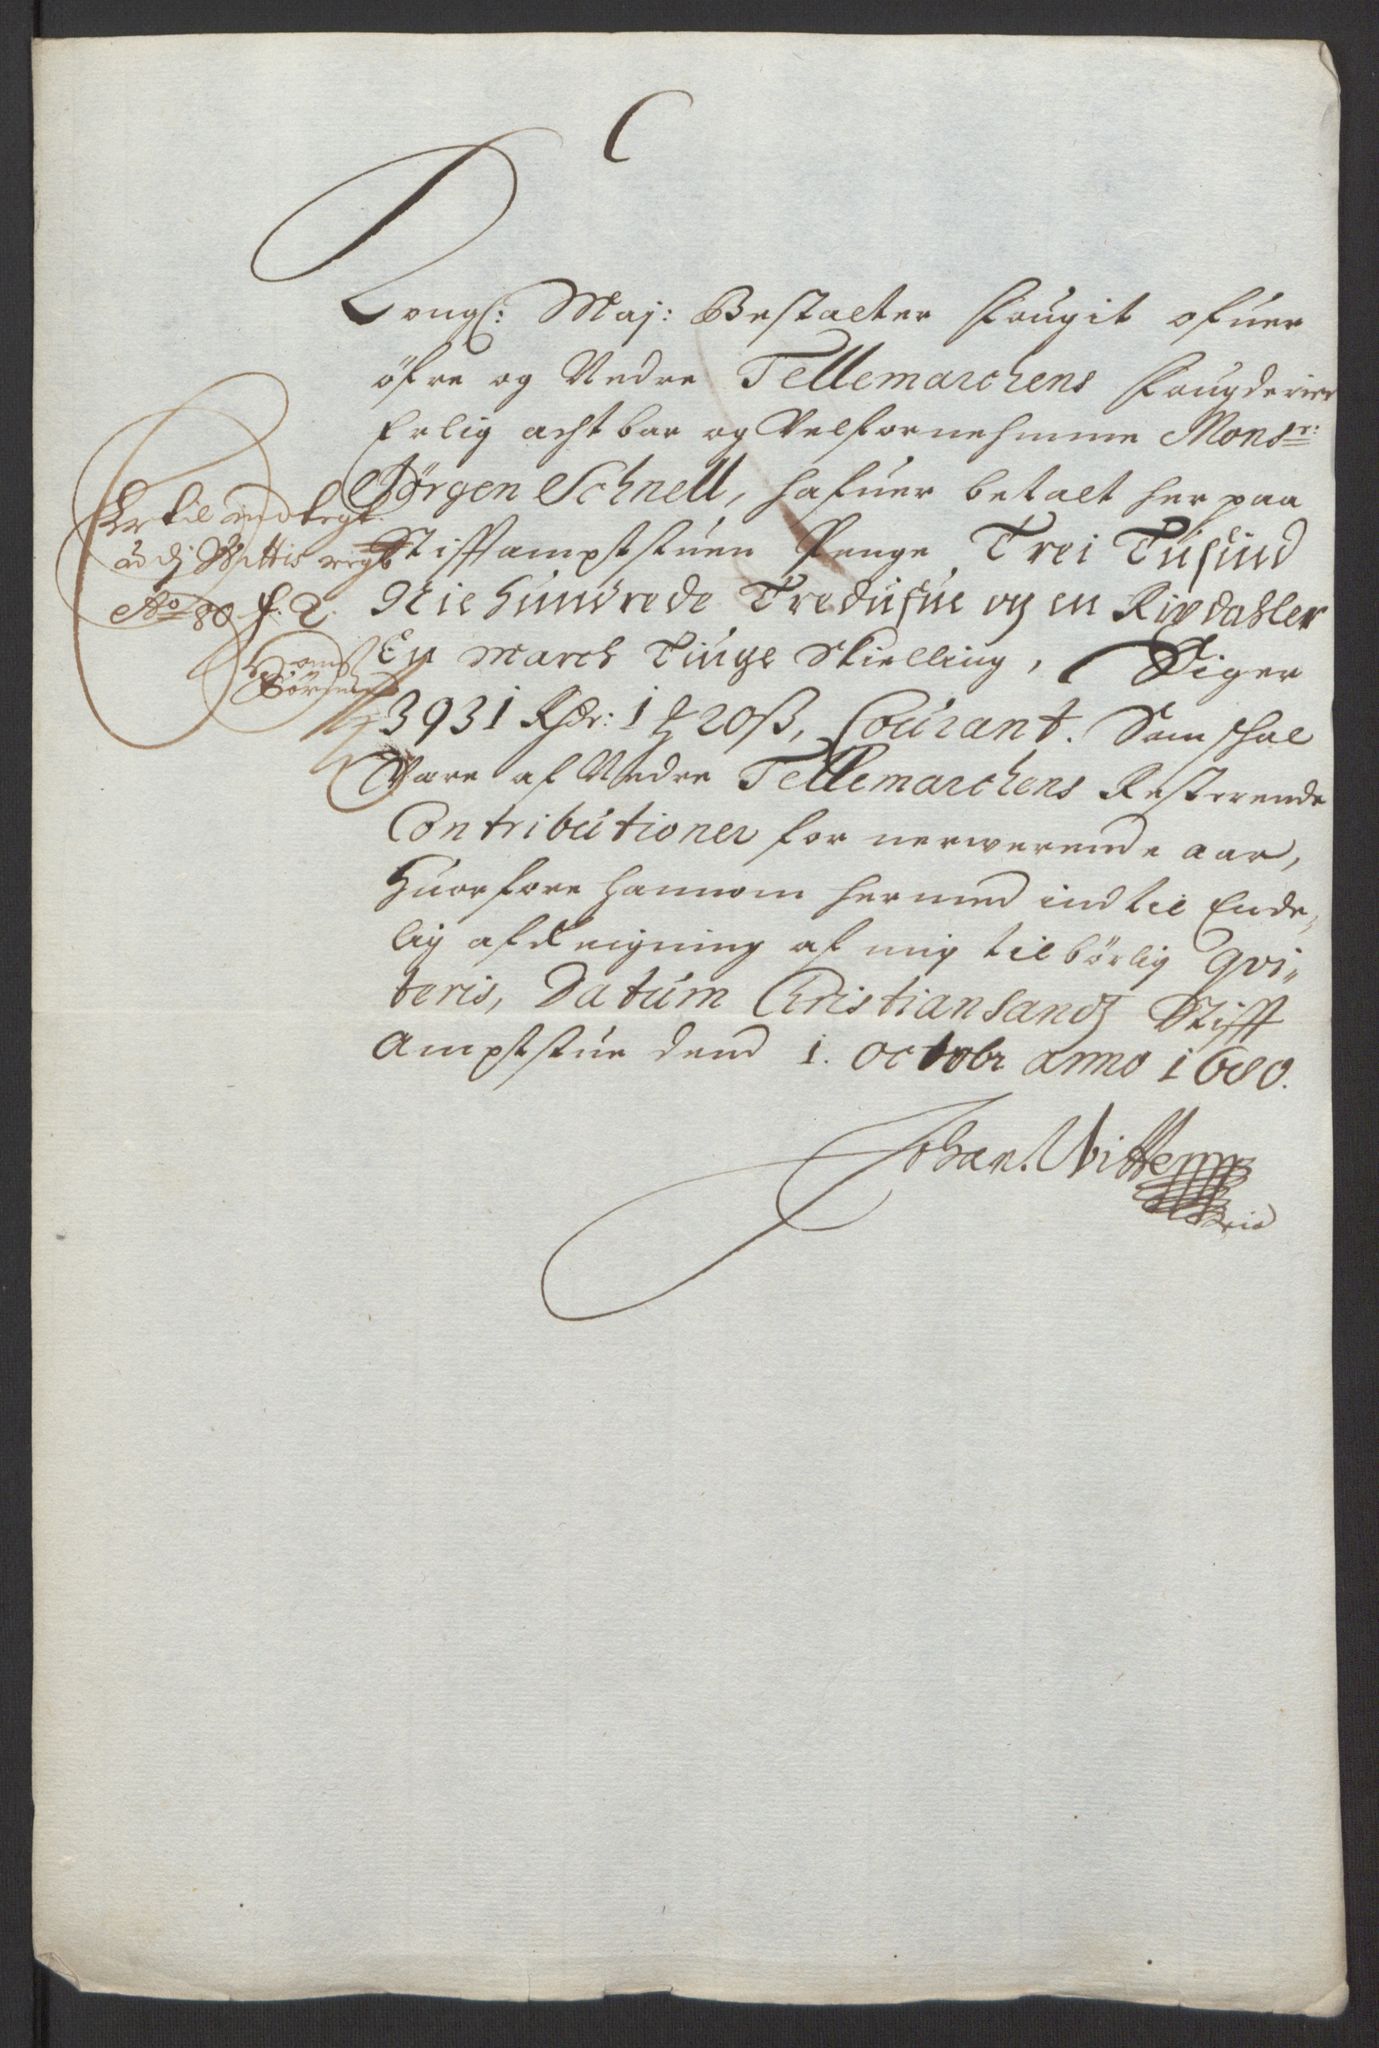 C
Kongl: Maj: Bestalter Fougit ofuer
öfre og Nedre Tellemarchens Fougderier
Erlig acht bar og Velfornehmme Monsr:
Jörgen Schnell, hafuer betalt her paa
Stiffamptstuen Penge Trei Tusind
Nie Hundrede Tredusiue og en Rixdahler
En March Tiuge Skielling, Siger
3931 Rdr: 1 ℳ 20 ß, Courant. Som schal
Vare af Nedre Tellemarchens Resterende
Contributioner for nerwerende aar,
Huorfore hannom hermed ind til Ende,
lig afreigning af mig tilbörlig qvi,,
teris, Datum Christiansandz Stiff
Amptstue dend 1. Octobr anno 1680.
Johan. Wittemn
Er til indtegt
udj Wittis regb
Ao 80 f. 2
Hans